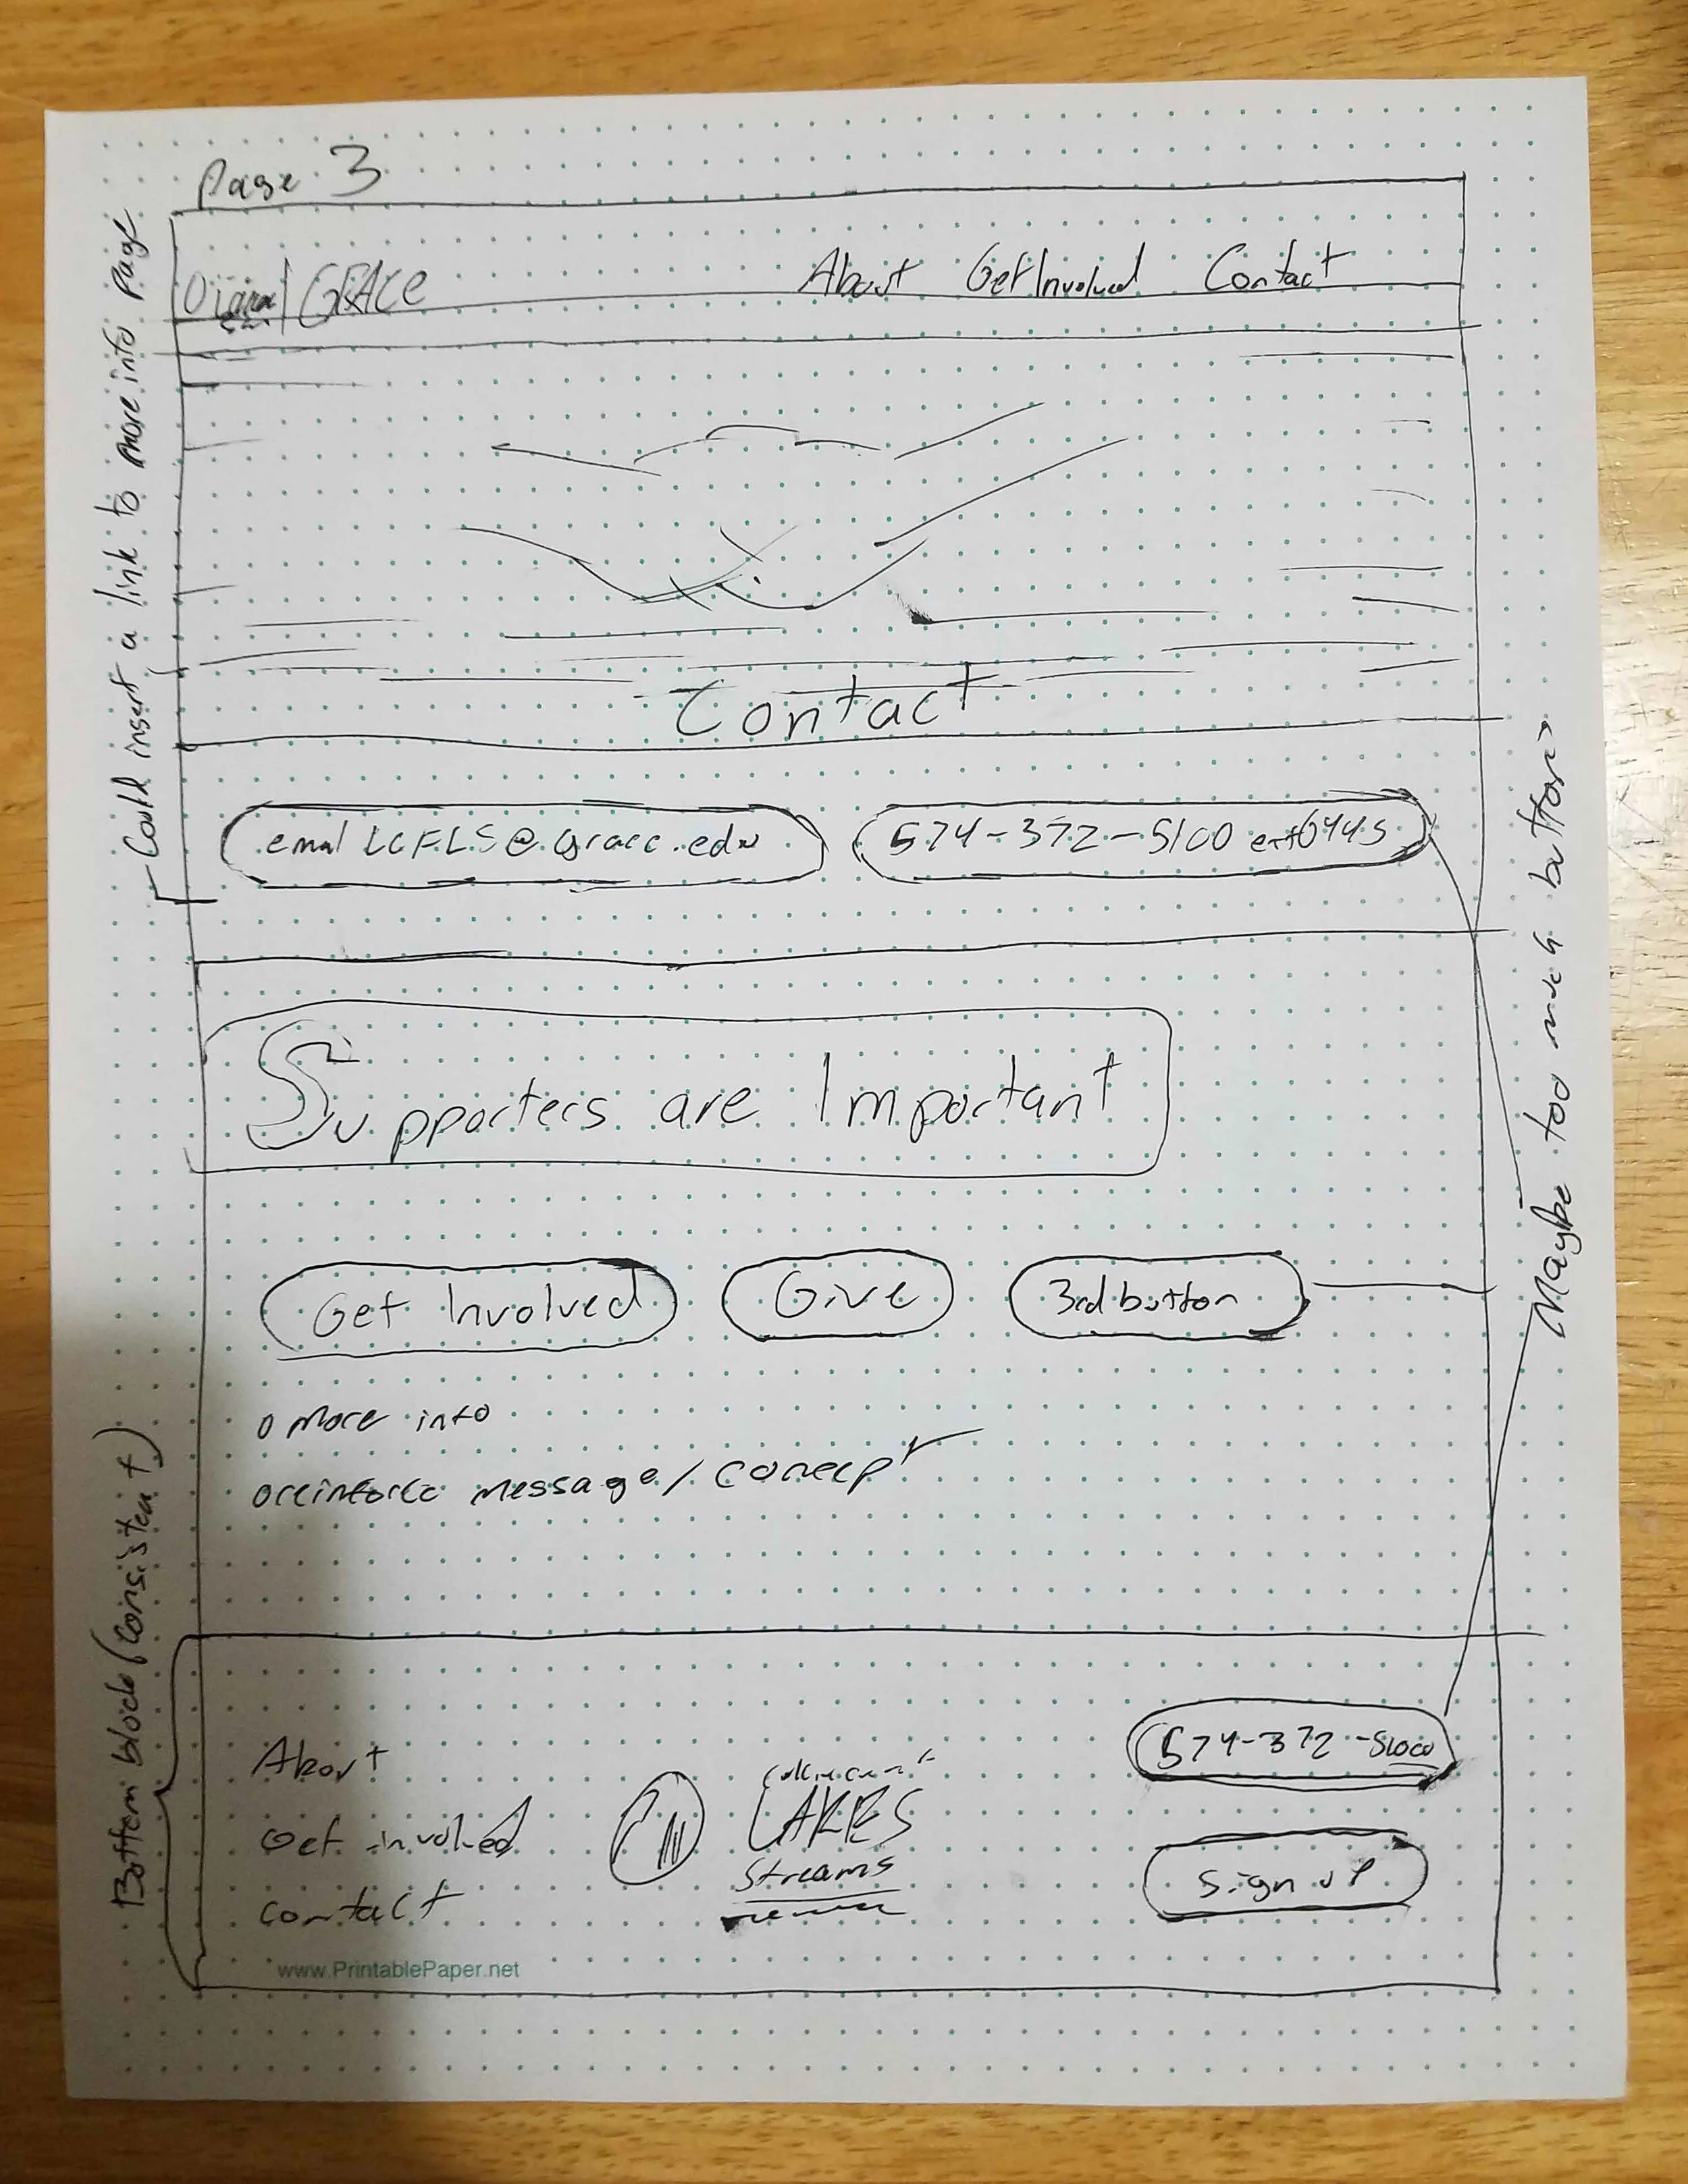 Page 3
GRACE
About Get Involved Contact
Could insert a link to more info page
Contact
email LCFLS@grace.edu
574-372-5100 ext 6445
Maybe too much buttons
Supporters are Important
Get Involved
Give
3rd button
o More info
o reinforce message/concept
Bottom block (consistent)
About
Get involved
contact
LAKES
Streams
574-372-5100
Sign up
www.PrintablePaper.net